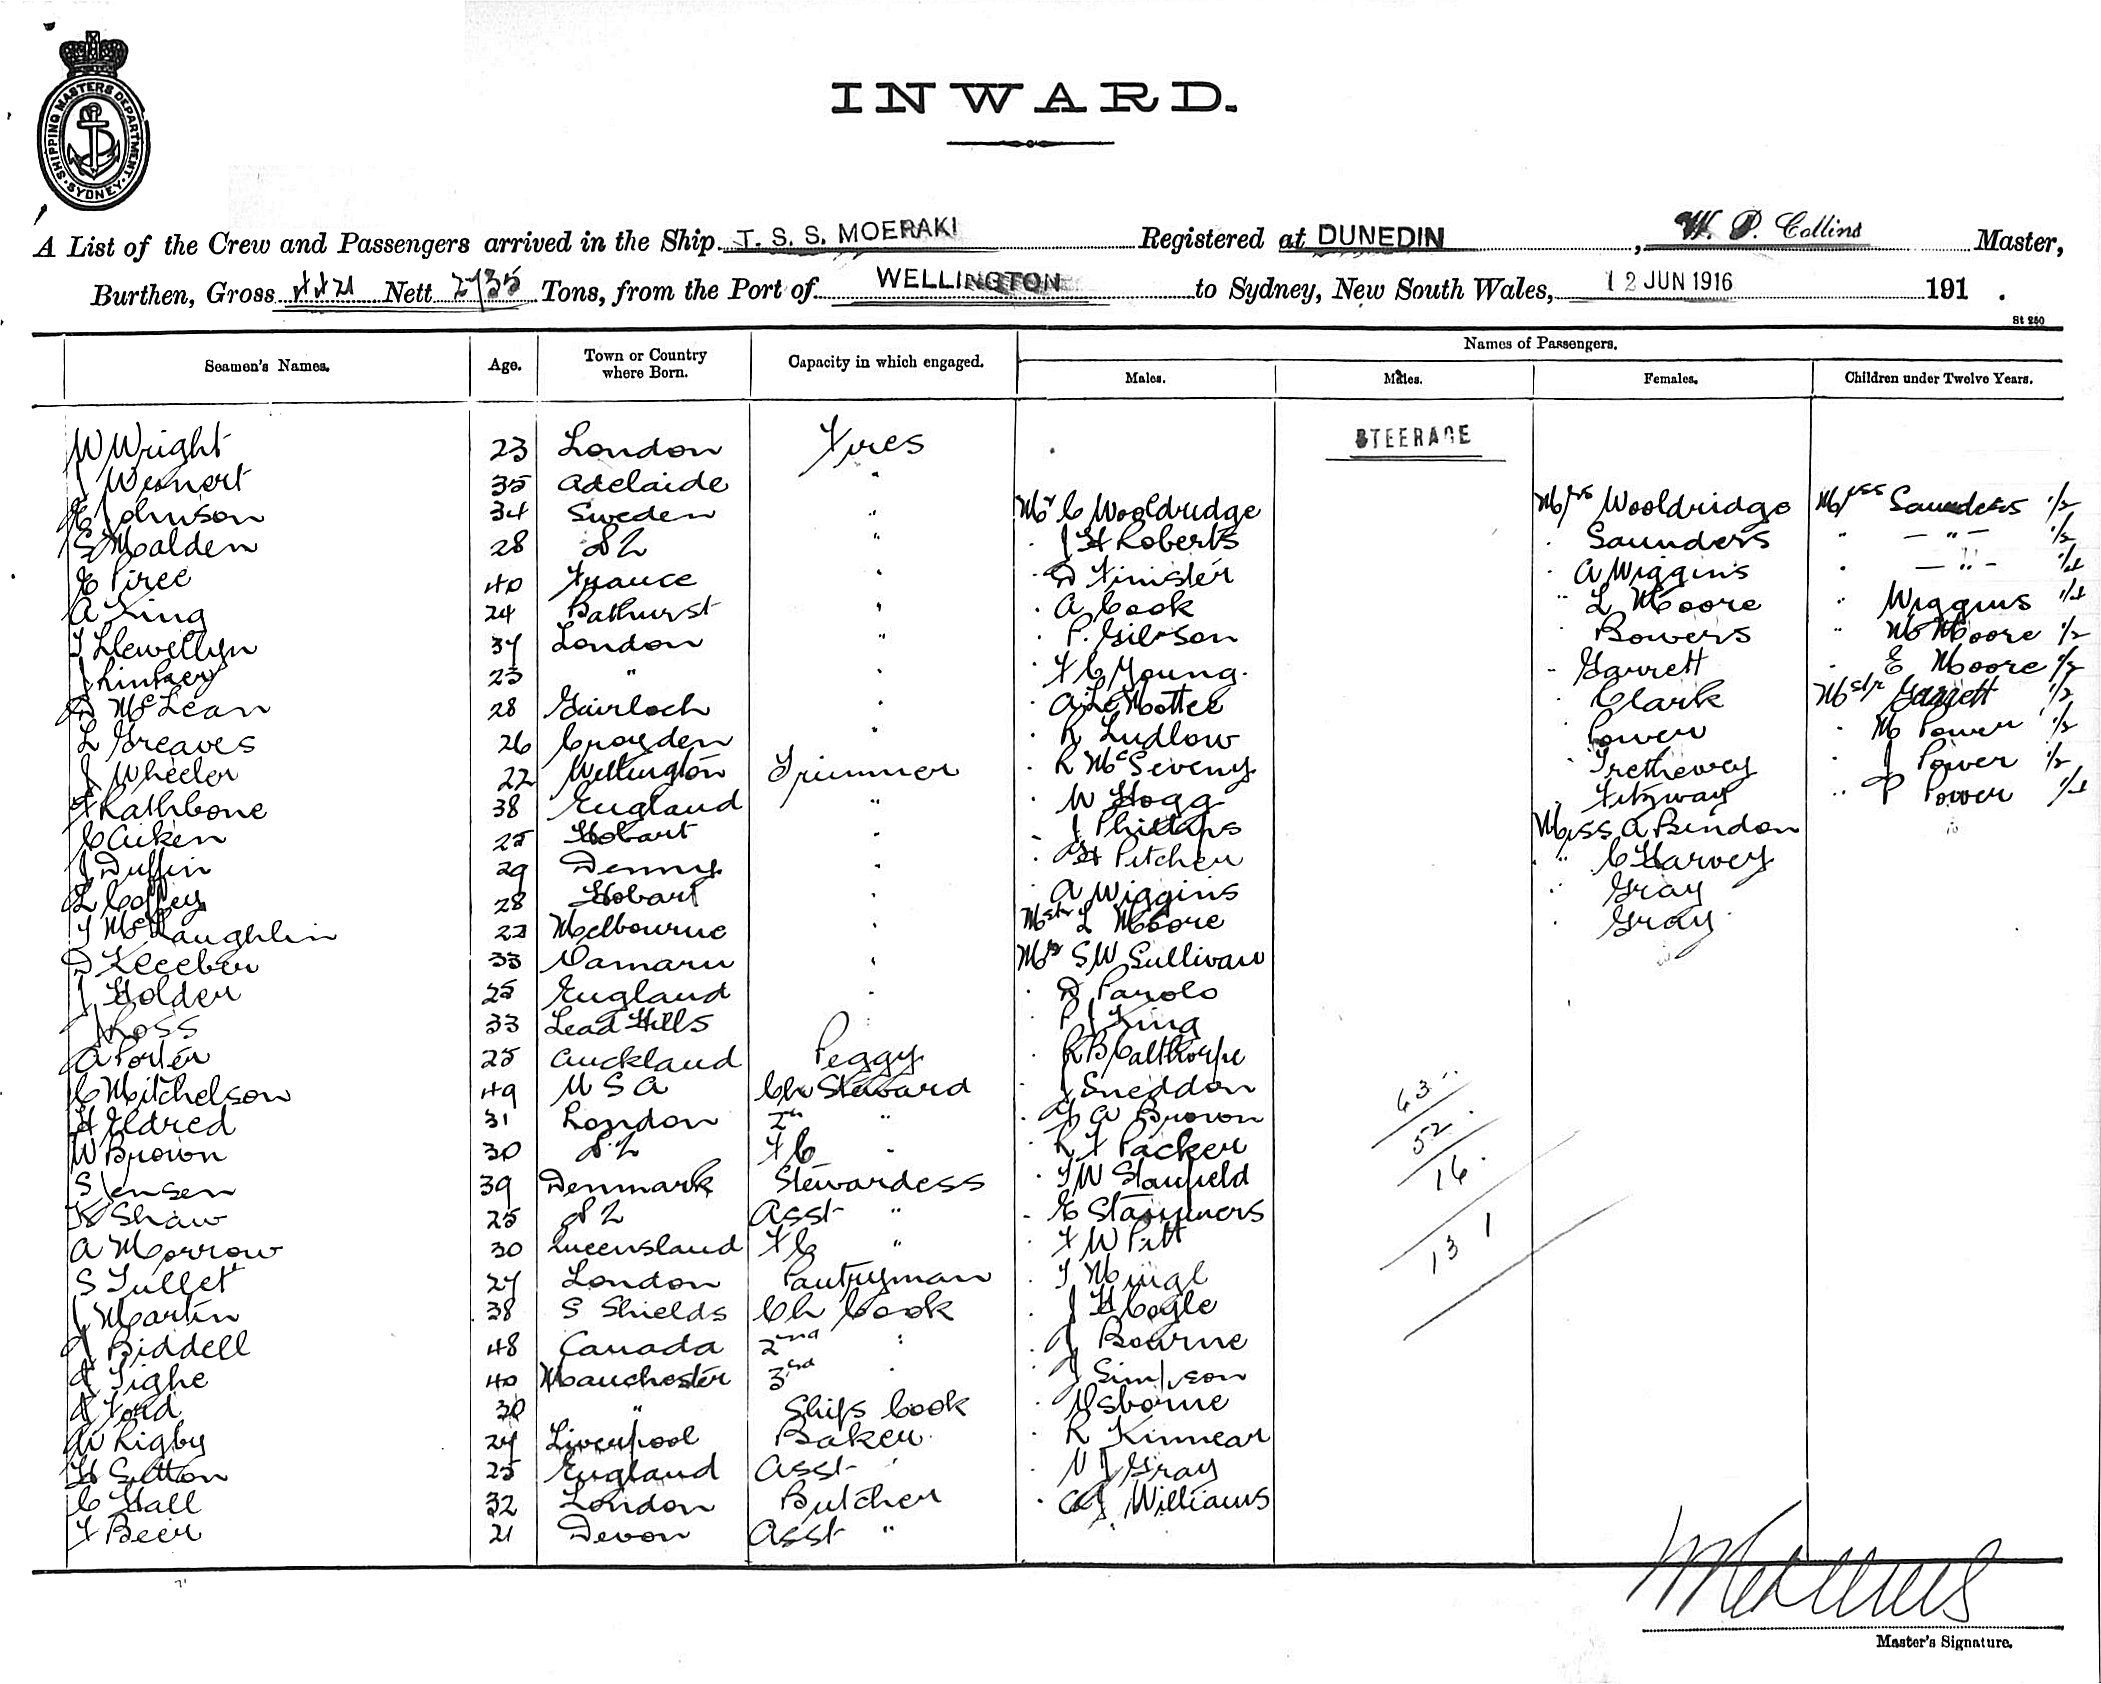 SHIPPING MASTERS DEPARTMENT. SYDNEY
INWARD.
A List of the Crew and Passengers arrived in the Ship T. S. S. MOERAKI Registered at DUNEDIN, W. P. Collins Master,
Burthen, Gross 4421 Nett 2735 Tons, from the Port of WELLINGTON to Sydney, New South Wales, 12 JUN 1916 191 .
St 250
Names of Passengers.
Seamen's Names. Age. Town or Country where Born. Capacity in which engaged. Males. Males. Females. Children under Twelve Years.
STEERAGE
W Wright 23 London Fires
J Weinert 35 Adelaide "
E Johnson 34 Sweden " Mr C Wooldridge Mrs Wooldridge Miss Saunders 1/2
S Malden 28 N Z " J H Roberts Saunders " — " — 1/2
E Piree 40 France " D Finister A Wiggins — " —
A King 24 Bathurst " A Cook " L Moore " Wiggins
T Llewellyn 34 London " P. Gibson Bowers " M Moore 1/2
J 23 " F C Young. Garrett E Moore 1/2
D McLean 28 Gairloch A Le Mottee Clark Mstr Garrett 1/2
L Greaves 26 Croyden R Ludlow Power M Power 1/2
J Wheeler 22 Wellington Trimmer R McSeveny Trethewey J Power 1/2
F Rathbone 38 England " W Hogg Fitzway P Power
C Aiken 25 Hobart J Phillips Miss A Bindon
J Duffin 29 Denny H Pitcher " C Harvey
L Coffey 28 Hobart A Wiggins Gray
T McLaughlin 22 Melbourne Mstr L Moore Gray
D 33 Oamaru Mr S W Sullivan
J Holder 25 England D Parolo
J Ross 33 Lead Hills P J King
A Porter 25 Auckland Peggy R B Calthorpe
C Mitchelson 49 U S A Ch Steward J Sneddon 63
H Eldred 31 London 2nd " A Brown 52
W Brown 30 N Z F C R F Packer 16
S Jensen 39 Denmark Stewardess T W Stanfield
K Shaw 25 N Z Asst " E Stammers
A Morrow 30 Queensland F C " F W Pitt 131
S Tullet 27 London Pantryman T
J Martin 38 S Shields Ch Cook J H Cogle
J Biddell 48 Canada 2nd J Bourne
A Tighe 40 Manchester 3rd J Simpson
A Ford 30 " Ships Cook Osborne
W Rigby 27 Liverpool Baker R Kinnear
H Sutton 25 England Asst W J Gray
C Hall 32 London Butcher Williams
F Beer 21 Devon Asst "
Master's Signature.